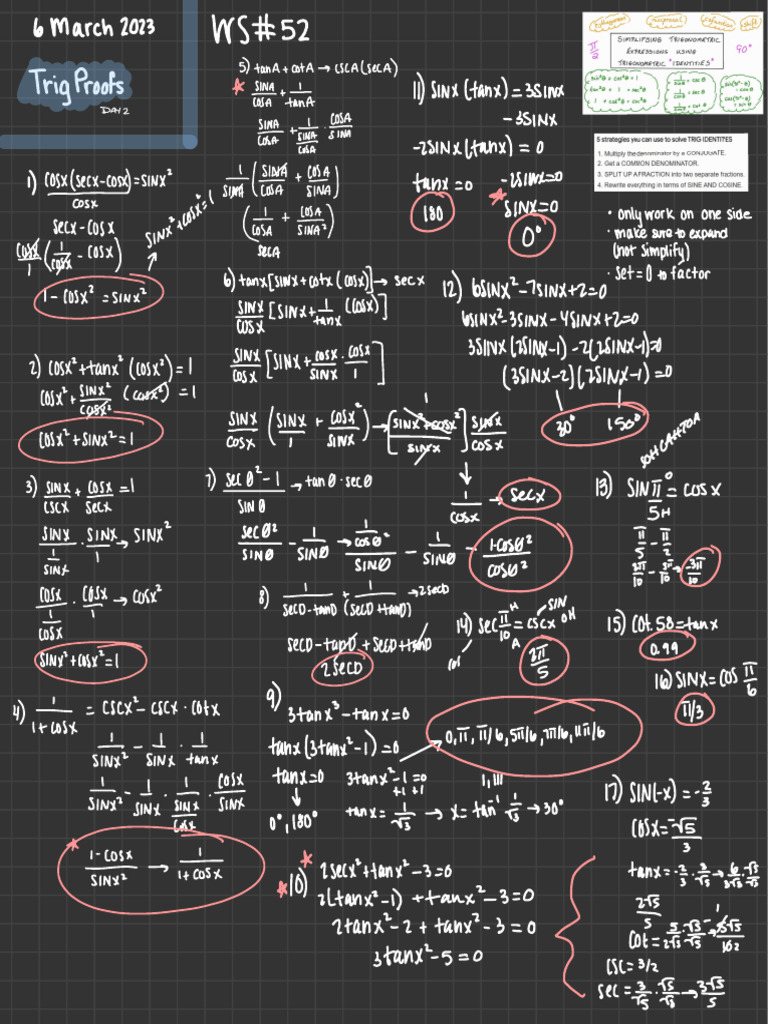 6 March 2023
Trig Proofs
DAY 2
WS#52
SIMPLIFYING TRIGONOMETRIC
EXPRESSIONS USING
TRIGONOMETRIC "IDENTITIES"
π/2
90°
5 strategies you can use to solve TRIG IDENTITES
1. Multiply the denominator by a CONJUGATE.
2. Get a COMMON DENOMINATOR.
3. SPLIT UP A FRACTION into two separate fractions.
4. Rewrite everything in terms of SINE AND COSINE.
• only work on one side
• make sure to expand
(not simplify)
• set = 0 to factor
1) cosx(secx-cosx)/cosx = sinx²
secx - cosx
cosx/1 (1/cosx - cosx)
sinx² + cosx² = 1
1 - cosx² = sinx²
2) cosx² + tanx² (cosx²) = 1
cosx² + sinx²/cosx² (cosx²) = 1
cosx² + sinx² = 1
3) sinx/cscx + cosx/secx = 1
sinx/(1/sinx) · sinx/1 → sinx²
cosx/(1/cosx) · cosx/1 → cosx²
sinx² + cosx² = 1
4) 1/(1+cosx) = cscx² - cscx · cotx
1/sinx² - 1/sinx · 1/tanx
1/sinx² - 1/sinx · 1/(sinx/cosx) · cosx/sinx
(1-cosx)/sinx² → 1/(1+cosx)
5) tanA + cotA → cscA(secA)
sinA/cosA + 1/tanA
sinA/cosA + 1/(sinA/cosA) · cosA/sinA
1/sinA (sinA/cosA + cosA/sinA)
(1/cosA + cosA/sinA²)
secA
6) tanx[sinx + cotx(cosx)] → secx
sinx/cosx [sinx + 1/tanx (cosx)]
sinx/cosx [sinx + cosx/sinx · cosx/1]
sinx/cosx (sinx/1 + cosx²/sinx) → [(sinx² + cosx²)/sinx] sinx/cosx
1
1/cosx → secx
7) (secθ² - 1)/sinθ → tanθ · secθ
secθ²/sinθ - 1/sinθ → (1/cosθ²)/sinθ - 1/sinθ - (1-cosθ²)/cosθ²
8) 1/(secD - tanD) + 1/(secD + tanD) → 2secD
secD - tanD + secD + tanD
2secD
9)
3tanx³ - tanx = 0
tanx(3tanx² - 1) = 0
tanx = 0 3tanx² - 1 = 0
+1 +1
0°, 180°
tanx = 1/√3 → x = tan⁻¹ 1/√3 → 30°
1, III
0, π, π/6, 5π/6, 7π/6, 11π/6
10) 2secx² + tanx² - 3 = 0
2(tanx² - 1) + tanx² - 3 = 0
2tanx² - 2 + tanx² - 3 = 0
3tanx² - 5 = 0
11) sinx(tanx) = 3sinx
- 3sinx
-2sinx(tanx) = 0
tanx = 0 -2sinx = 0
180 sinx = 0
0°
12) 6sinx² - 7sinx + 2 = 0
6sinx² - 3sinx - 4sinx + 2 = 0
3sinx(2sinx - 1) - 2(2sinx - 1) = 0
(3sinx - 2)(2sinx - 1) = 0
30° 150°
SOHCAHTOA
13) sin π/5 O/H = cosx
π/5 - π/2
2π/10 - 5π/10 → -3π/10
14) sec π/10 H/A = cscx OH
SIN
cos
2π/5
15) cot.58 = tanx
0.99
16) sinx = cos π/6
π/3
17) sin(-x) = -2/3
cosx = -√5/3
tanx = -2/3 · 3/√5 → 6/3√5 · √5/√5
2√5/5
cot = 5/2√5 · √5/√5 → 5√5/10 2
1
csc = 3/2
sec = 3/√5 · √5/√5 → 3√5/5